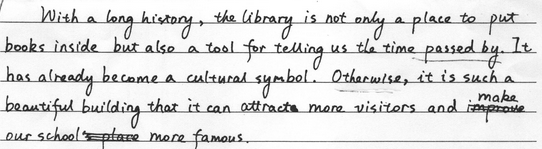 With a long history, the library is not only a place to put
books inside but also a tool for telling us the time passed by. It
has already become a cultural symbol. Otherwise, it is such a
beautiful building that it can attract more visitors and make
our school more famous.